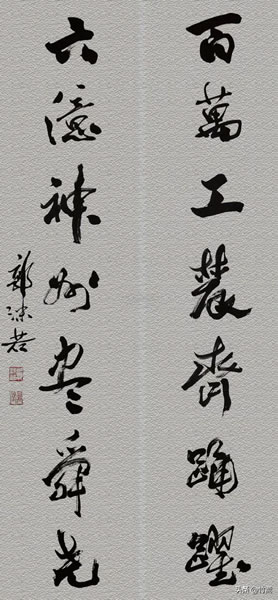 百萬工農齊踊躍
六億神州盡舜尧
郭沫若
头条@竹溪